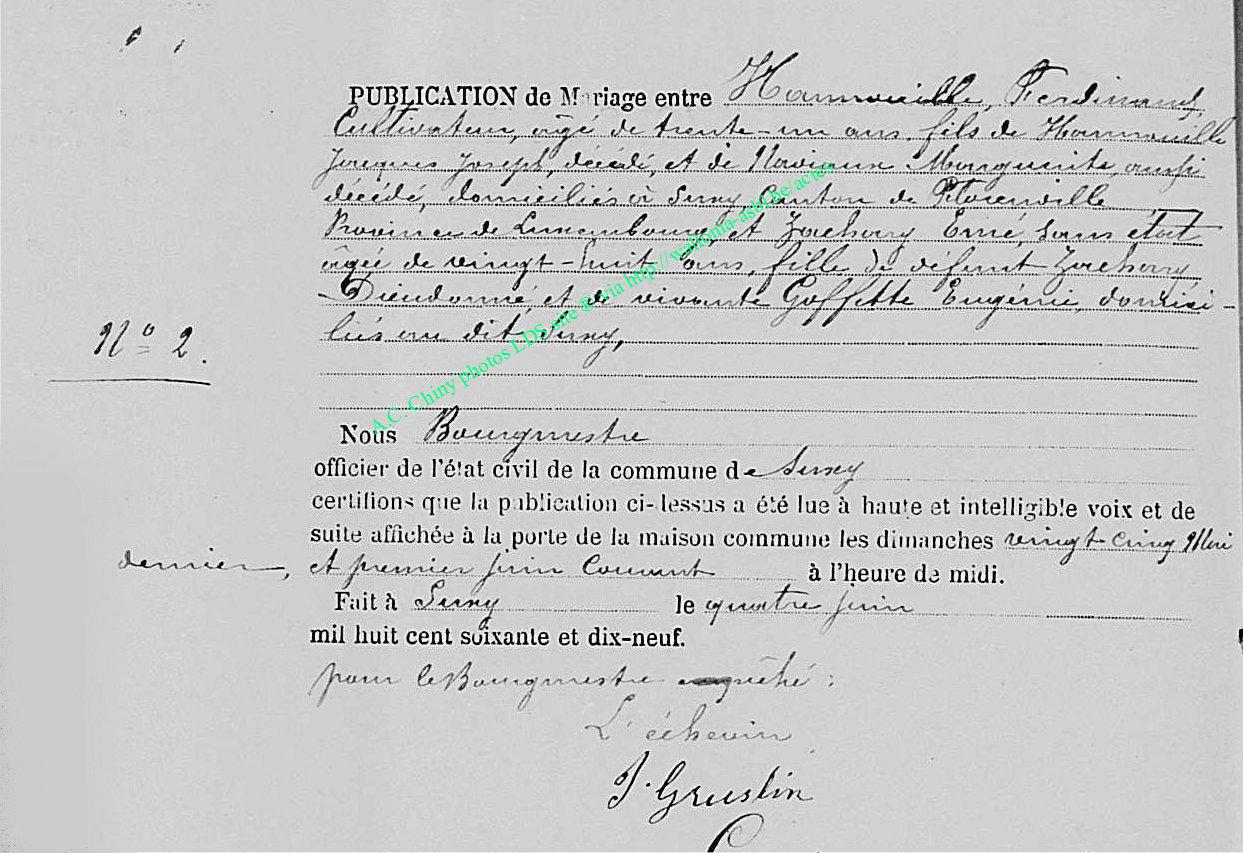 PUBLICATION de Mariage entre Hannouille, Ferdinand,
Cultivateur, âgé de trente-un ans, fils de Hannouille
Jacques Joseph, décédé, et de Naviaux Marguerite, aussi
décédé, domiciliés à Suxy, Canton de Florenville
Province de Luxembourg, et Zachary Emé, sans état
âgée de vingt-huit ans, fille de défunt Zachary
Dieudonné et de vivante Goffette Eugénie, domici-
liés au dit Suxy,
Nº 2.
A.C. Chiny photos LDS site via http://wallonia-asbl.be/actes
Nous Bourgmestre
officier de l'état civil de la commune de Suxy
certifions que la publication ci-dessus a été lue à haute et intelligible voix et de
suite affichée à la porte de la maison commune les dimanches vingt-cinq Mai
dernier, et premier juin Courant à l'heure de midi.
Fait à Suxy le quatre juin
mil huit cent soixante et dix-neuf.
pour le Bourgmestre empêché :
L'échevin
J. Gruslin